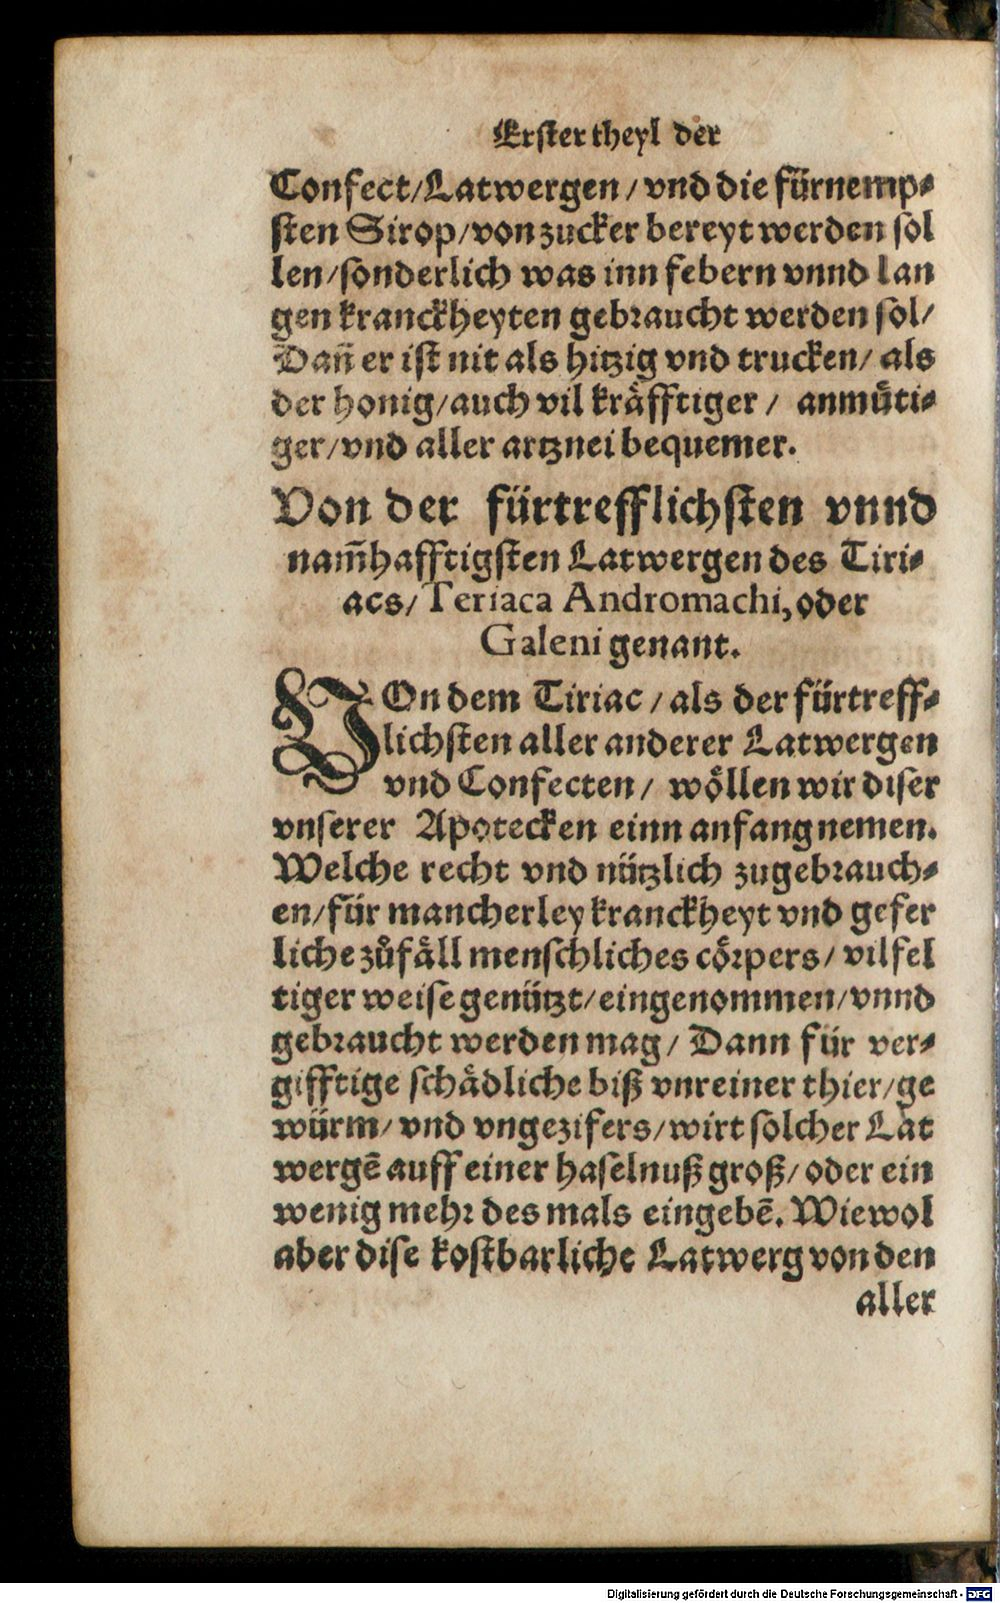 Erster theyl der
Confect/Latwergen/vnd die fürnemp⸗
sten Sirop/von zucker bereyt werden sol
len/sonderlich was inn febern vnnd lan
gen kranckheyten gebraucht werden sol/
Dañ er ist nit als hitzig vnd trucken/ als
der honig/auch vil kräfftiger/ anmůti⸗
ger/vnd aller artznei bequemer.
Von der fürtrefflichsten vnnd
nam̃hafftigsten Latwergen des Tiri⸗
acs/Teriaca Andromachi, oder
Galeni genant.
VOn dem Tiriac/als der fürtreff⸗
lichsten aller anderer Latwergen
vnd Confecten/ wöllen wir diser
vnserer Apotecken einn anfang nemen.
Welche recht vnd nützlich zugebrauch⸗
en/für mancherley kranckheyt vnd gefer
liche zůfäll menschliches cörpers/vilfel
tiger weise genützt/eingenommen/vnnd
gebraucht werden mag/Dann für ver⸗
gifftige schädliche biß vnreiner thier/ge
würm/vnd vngezifers/wirt solcher Lat
wergē auff einer haselnuß groß/oder ein
wenig mehr des mals eingebē. Wiewol
aber dise kostbarliche Latwerg von den
aller
Digitalisierung gefördert durch die Deutsche Forschungsgemeinschaft - DFG